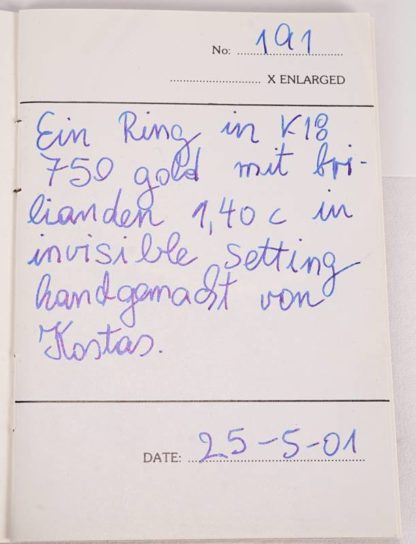 No: 191
X ENLARGED
Ein Ring in K18
750 gold mit bri-
lianden 1,40 c in
invisible setting
handgemacht von
Kostas.
DATE: 25-5-01